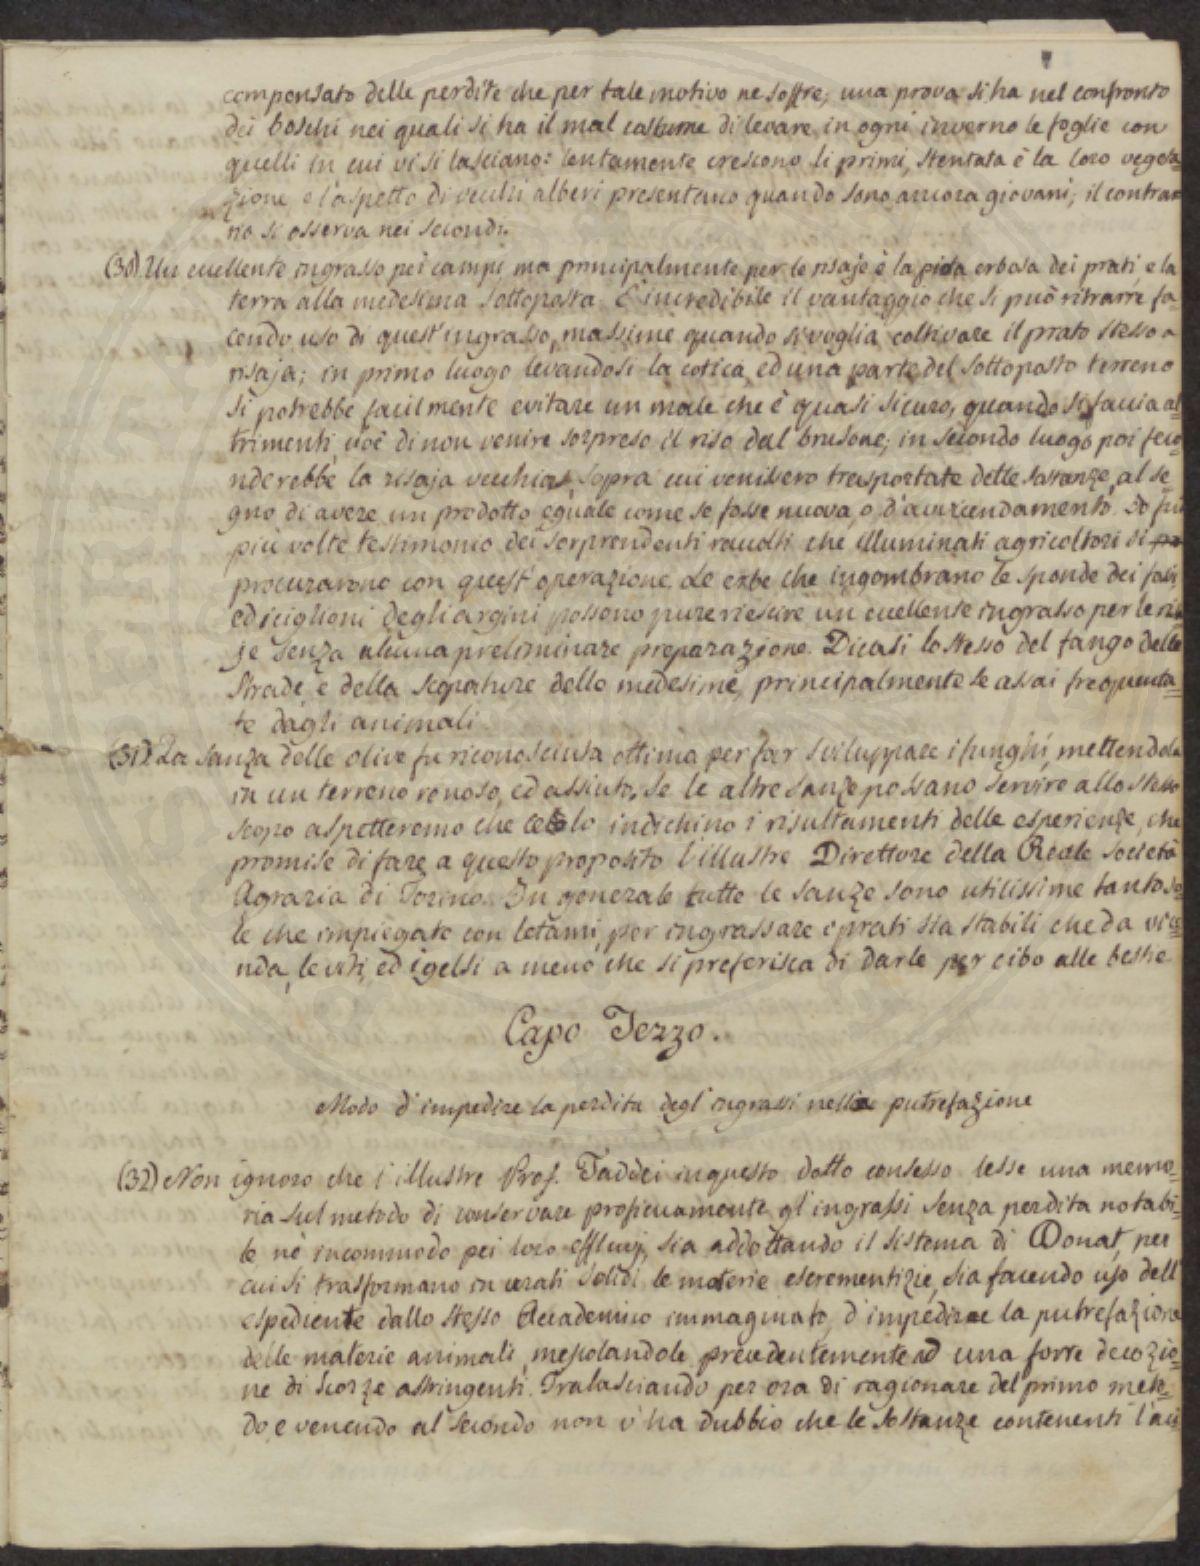 compensato delle perdite che per tale motivo ne soffre; una prova si ha nel confronto
dei boschi nei quali si ha il mal costume di levare in ogni inverno le foglie con
quelli in cui vi si lasciano: lentamente crescono li primi, stentata è la loro vegeta-
zione e l'aspetto di vecchi alberi presentano quando sono ancora giovani; il contra-
rio si osserva nei secondi.
(30) Un eccellente ingrasso pei campi ma principalmente per le risaje è la piota erbosa dei prati e la
terra alla medesima sottoposta. È incredibile il vantaggio che si può ritrarre fa-
cendo uso di quest'ingrasso, massime quando si voglia coltivare il prato stesso a
risaja; in primo luogo levandosi la cotica, ed una parte del sottoposto terreno
si potrebbe facilmente evitare un male che è quasi sicuro, quando si faccia al-
trimenti, cioè di non venire sorpreso il riso dal brusone; in secondo luogo poi feco-
nderebbe la risaja vecchia, sopra cui venissero trasportate dette sostanze, al se-
gno di avere un prodotto eguale come se fosse nuova, o d'avvicendamento. Io fui
più volte testimonio dei sorprendenti raccolti che illuminati agricoltori si
procurarono con quest'operazione. Le erbe che ingombrano le sponde dei fossi,
ed i ciglioni degli argini possono pure riescire un eccellente ingrasso per le risa-
je senza alcuna preliminare preparazione. Dicasi lo stesso del fango delle
strade, e della scopature delle medesime, principalmente se assai frequenta-
te dagli animali.
(31) La sanza delle olive fu riconosciuta ottima per far sviluppare i funghi, mettendola
in un terreno renoso, ed asciuto. Se le altre sanze possano servire allo stesso
scopo aspetteremo che ce lo indichino i risultamenti delle esperienze, che
promise di fare a questo proposito l'illustre Direttore della Reale Società
Agraria di Torino. In generale tutte le sanze sono utilissime tanto so-
le che impiegate con letami, per ingrassare i prati sia stabili che da vice-
nda, le viti, ed i gelsi a meno che si preferisca di darle per cibo alle bestie
Capo Terzo.
Modo d'impedire la perdita degl'ingrassi nella putrefazione
(32) Non ignoro che l'illustre Prof. Taddei in questo dotto consesso lesse una memo-
ria sul metodo di conservare proficuamente gl'ingrassi senza perdita notabi-
le nè incommodo pei loro effluvj, sia addottando il sistema di Donat, per
cui si trasformano in urati solidi le materie escrementizie, sia facendo uso dell'
espediente dallo stesso Accademico immaginato, d'impedire la putrefazione
delle materie animali, mescolandole precedentemente ad una forre decozio-
ne di scorze astringenti. Tralasciando per ora di ragionare del primo meto-
do, e venendo al secondo non v'ha dubbio che le sostanze contenenti l'aci-